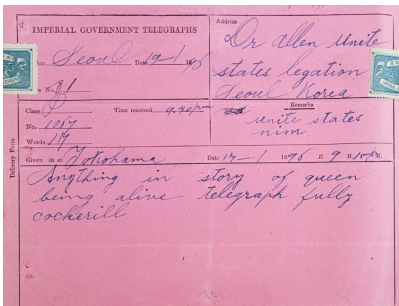 IMPERIAL GOVERNMENT TELEGRAPHS
Seoul Date 19-1
Class P Time received 9.40 pm
No. 1007
Words 14
Given in at Yokohama Date 19-1 1896 H. 9 M.
Address
Dr Allen Unite
states legation
Seoul Korea
Remarks
unite states
nim.
Delivery Form
Anything in story of queen
being alive telegraph fully
cockerill